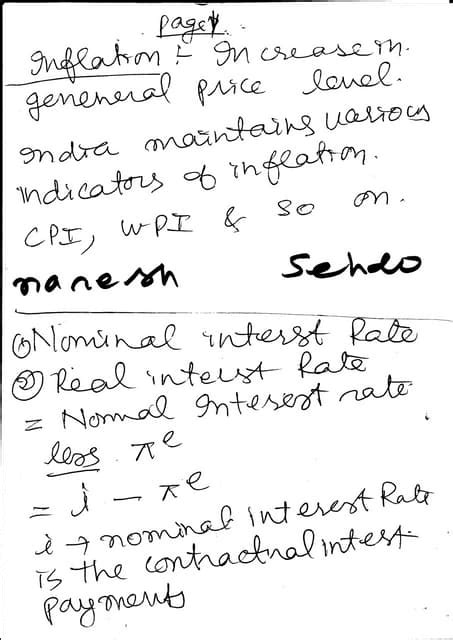 page 1.
Inflation :- Increase in.
geneneral price level.
India maintains various
indicators of inflation.
CPI, WPI & so on.
nanesh Sehdo
① Nominal interst Rate
② Real inteist Rate
= Normal Interest rate
less π^e
= i - π^e
i → nominal interest Rate
is the contractual intest
payments